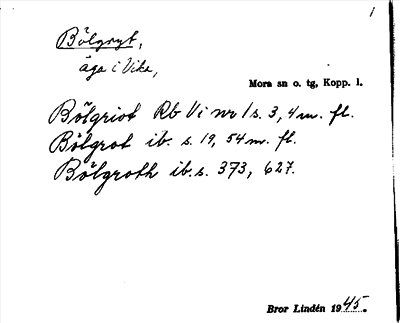 1
Bölgryt,
äga i Vika,
Mora sn o. tg, Kopp. l.
Bölgriot Rb Vi nr 1 s. 3, 4 m. fl.
Bölgrot ib. s. 19, 54 m. fl.
Bölgroth ib. s. 373, 627.
Bror Lindén 1945.